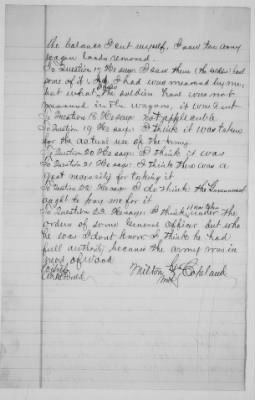 The balance I cut myself, I saw ten army
wagon loads removed.
To Question 17 He says I saw them (the soldiers) haul
some of it. What I had was measured by me,
but what the soldiers haul was not
measured in the wagons, it was cut
To Question 18 He says not applicable
To Question 19 He says I think it was taken
for the actual use of the army
To Question 20 He says I think it was
To Question 21 He says I think there was a
great necessity for taking it
To Question 22 He says I do think the Government
ought to pay me for it
To Question 23 He says I think it was taken under the
orders of some General officer but who
he was I dont know. I think he had
full authority because the army was in
need of wood
Milton G. Copeland